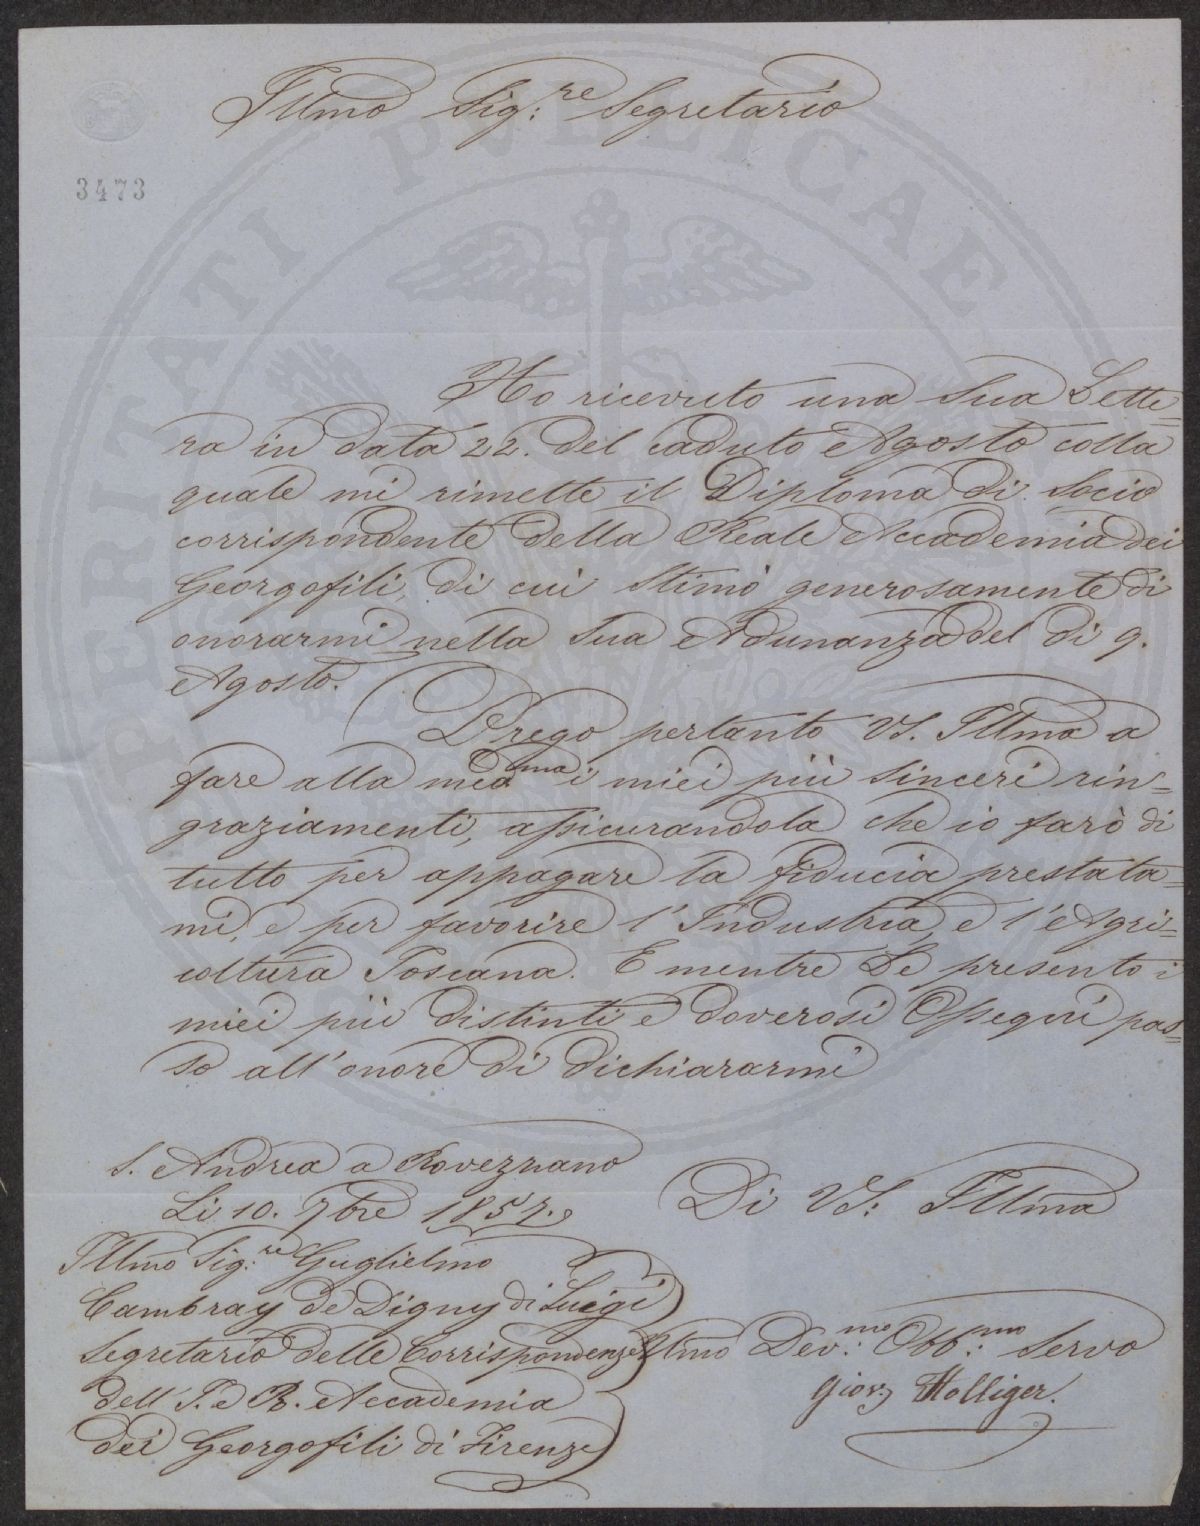 Illmo Sig:re Segretario
3473
Ho ricevuto una Sua Lette=
ra in data 22. del caduto Agosto colla
quale mi rimette il Diploma di Socio
corrispondente della Reale Accademia dei
Georgofili, di cui stimò generosamente di
onorarmi nella Sua Adunanza del dì 9.
Agosto.
Prego pertanto VS. Illma a
fare alla medma i miei più sinceri rin=
graziamenti, assicurandola che io farò di
tutto per appagare la fiducia prestata=
mi, e per favorire l'Industria, e l'Agri=
coltura Toscana. E mentre Le presento i
miei più distinti e doverosi Ossequi pas=
so all'onore di dichiararmi
S. Andrea a Rovezzano
Li 10. 7bre 1857.
Di VS: Illma
Illmo Sig:re Guglielmo
Cambray de Digny di Luigi
Segretario delle Corrispondenze
dell'I. e R. Accademia
dei Georgofili di Firenze
Dev:mo Obb:mo Servo
Giov: Holliger.
PROSPERITATI PVBLICAE